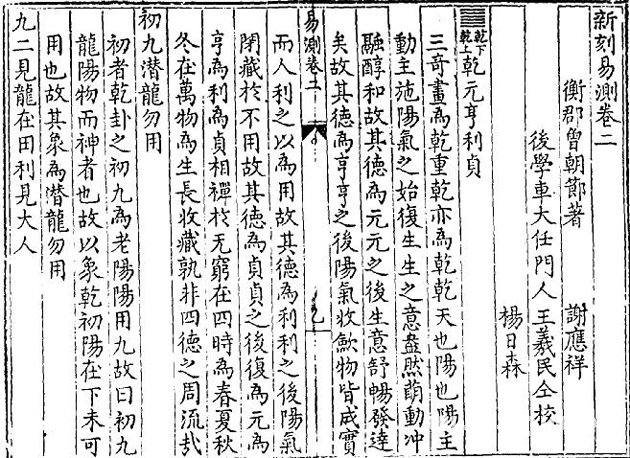 新刻易測卷二
衡郡曾朝節著 謝應祥
後學車大任門人王羲民仝校
楊日森
乾下乾上乾元亨利貞
三奇畫為乾重乾亦為乾乾天也陽也陽主
動主施陽氣之始復生生之意盎然萌動冲
融醇和故其德為元元之後生意舒暢發達
矣故其德為亨亨之後陽氣收斂物皆成實
易測卷二 乙
而人利之以為用故其德為利利之後陽氣
閉藏於不用故其德為貞貞之後復為元為
亨為利為貞相禪於无窮在四時為春夏秋
冬在萬物為生長收藏孰非四德之周流哉
初九潛龍勿用
初者乾卦之初九為老陽陽用九故曰初九
龍陽物而神者也故以象乾初陽在下未可
用也故其象為潛龍勿用
九二見龍在田利見大人